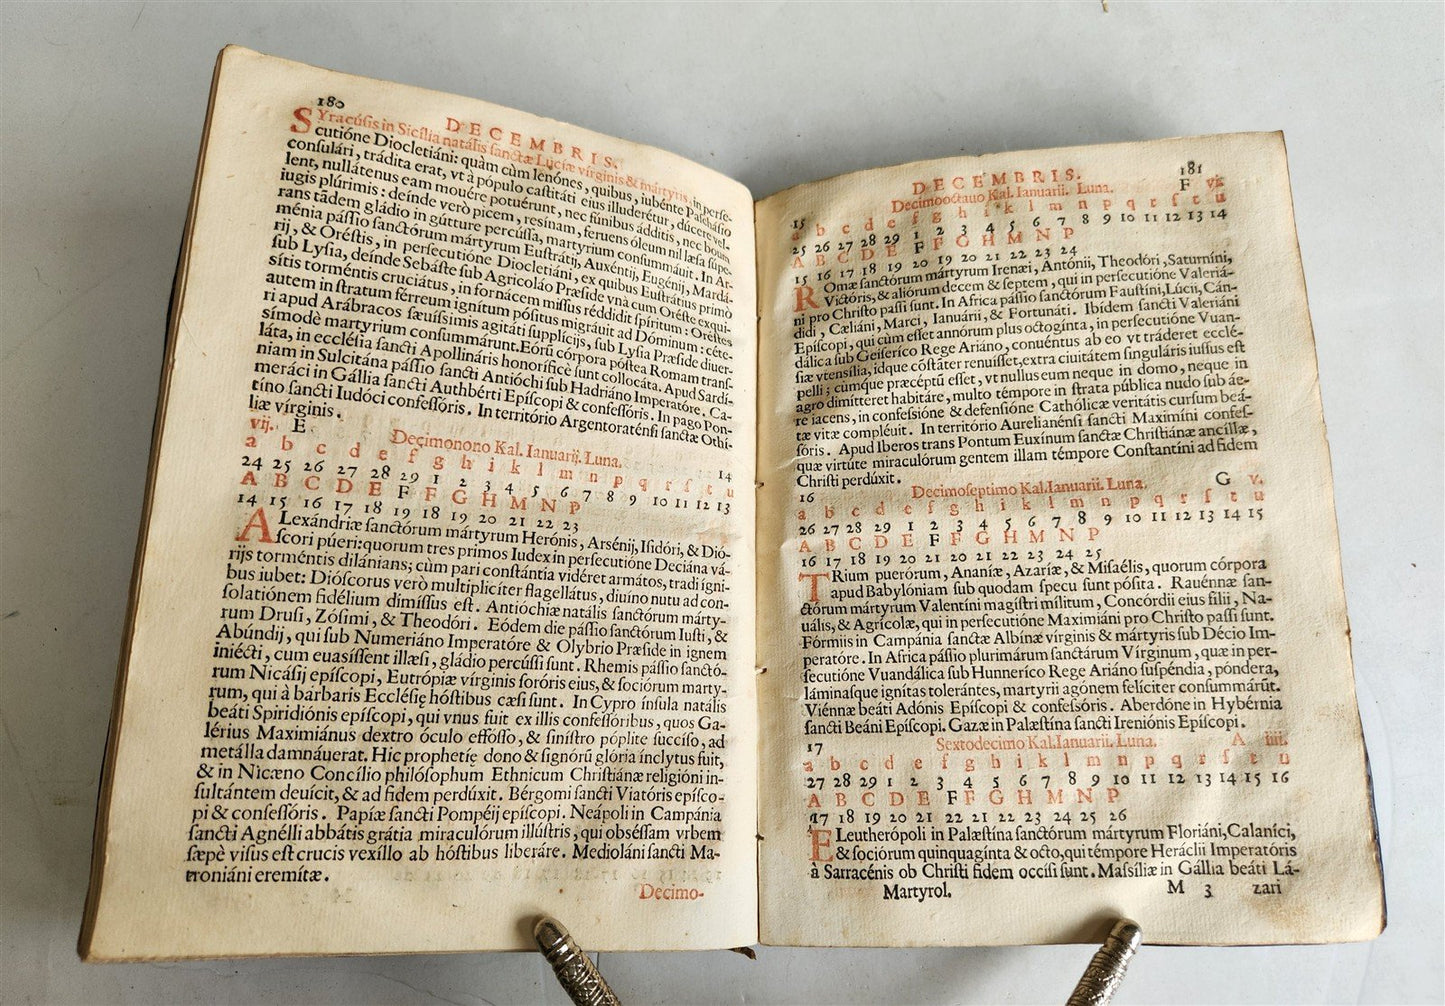 180
DECEMBRIS.
SYracúsis in Sicília natális sanctæ Lucíæ vírginis & mártyris, in perse-
cutióne Diocletiáni: quàm cùm lenónes, quibus, iubénte Paschásio
consulári, trádita erat, vt à pópulo castitáti eius illuderétur, dúcere vel-
lent, nullátenus eam mouére potuérunt, nec fúnibus ádditis, nec boum
iugis plúrimis: deínde verò picem, resínam, feruens óleum nil læsa súpe-
rans tãdem gládio in gútture percússa, martyrium consummáuit. In Ar-
ménia pássio sanctórum mártyrum Eustrátij, Auxéntij, Eugénij, Mardá-
rij, & Oréstis, in persecutióne Diocletiáni, ex quibus Eustrátius primò
sub Lysia, deínde Sebáste sub Agricoláo Præside vnà cum Oréste exqui-
sítis torméntis cruciátus, in fornácem missus réddidit spíritum: Oréstes
autem in stratum férreum ignítum pósitus migráuit ad Dóminum: céte-
ri apud Arábracos sæuíssimis agitáti supplícijs, sub Lysia Præside diuer-
símodè martyrium consummárunt. Eórũ córpora póstea Romam trans-
láta, in ecclésia sancti Apollináris honoríficè sunt collocáta. Apud Sardí-
niam in Sulcitána pássio sancti Antióchi sub Hadriáno Imperatóre. Ca-
meráci in Gállia sancti Authbérti Epíscopi & confessóris. In pago Pon-
tíno sancti Iudóci confessóris. In território Argentoraténsi sanctæ Othí-
liæ vírginis.
vij. E Decimonono Kal. Ianuarij. Luna. 14
a b c d e f g h i k l m n p q r s t u
24 25 26 27 28 29 1 2 3 4 5 6 7 8 9 10 11 12 13
A B C D E F F G H M N P
14 15 16 17 18 19 18 19 20 21 22 23
ALexándriæ sanctórum mártyrum Herónis, Arsénij, Isidóri, & Dió-
scori púeri: quorum tres primos Iudex in persecutióne Deciána vá-
rijs torméntis dilánians; cùm pari constántia vidéret armátos, tradi ígni-
bus iubet: Dióscorus verò multiplicíter flagellátus, diuíno nutu ad con-
solatiónem fidélium dimíssus est. Antiochiæ natális sanctórum márty-
rum Drusi, Zósimi, & Theodóri. Eódem die pássio sanctórum Iusti, &
Abúndij, qui sub Numeriáno Imperatóre & Olybrio Præside in ignem
iniécti, cum euasíssent illæsi, gládio percússi sunt. Rhemis pássio sanctó-
rum Nicásij epíscopi, Eutrópiæ vírginis soróris eius, & sociórum marty-
rum, qui à bárbaris Ecclésię hóstibus cæsi sunt. In Cypro ínsula natális
beáti Spiridiónis epíscopi, qui vnus fuit ex illis confessóribus, quos Ga-
lérius Maximiánus dextro óculo effósso, & sinístro póplite succíso, ad
metálla damnáuerat. Hic prophetíę dono & signórũ glória ínclytus fuit,
& in Nicæno Concílio philósophum Ethnicum Christiánæ religióni in-
sultántem deuícit, & ad fidem perdúxit. Bérgomi sancti Viatóris epísco-
pi & confessóris. Papíæ sancti Pompéij epíscopi. Neápoli in Campánia
sancti Agnélli abbátis grátia miraculórum illústris, qui obséssam vrbem
sæpè visus est crucis vexíllo ab hóstibus liberáre. Mediolání sancti Ma-
troniáni eremítæ.
Decimo-
DECEMBRIS. 181
15 Decimooctauo Kal. Ianuarii. Luna. F vii.
a b c d e f g h i k l m n p q r s t u
25 26 27 28 29 1 2 3 4 5 6 7 8 9 10 11 12 13 14
A B C D E F F G H M N P
15 16 17 18 19 20 19 20 21 22 23 24
ROmæ sanctórum mártyrum Irenæi, Antónii, Theodóri, Saturníni,
Victóris, & aliórum decem & septem, qui in persecutióne Valeriá-
ni pro Christo passi sunt. In Africa pássio sanctórum Faustíni, Lúcii, Cán-
didi, Cæliáni, Marci, Ianuárii, & Fortunáti. Ibídem sancti Valeriáni
Epíscopi, qui cùm esset annórum plus octogínta, in persecutióne Vuan-
dálica sub Geiseríco Rege Ariáno, conuéntus ab eo vt tráderet ecclé-
siæ vtensília, idque cõstáter renuísset, extra ciuitátem singuláris iussus est
pelli; cùmque præcéptũ esset, vt nullus eum neque in domo, neque in
agro dimítteret habitáre, multo témpore in strata pública nudo sub áe-
re iacens, in confessióne & defensióne Cathólicæ veritátis cursum beá-
tæ vitæ compléuit. In território Aurelianénsi sancti Maxímini confes-
sóris. Apud Iberos trans Pontum Euxínum sanctæ Christiánæ ancíllæ,
quæ virtúte miraculórum gentem illam témpore Constantíni ad fidem
Christi perdúxit.
16 Decimoseptimo Kal. Ianuarii. Luna. G v.
a b c d e f g h i k l m n p q r s t u
26 27 28 29 1 2 3 4 5 6 7 8 9 10 11 12 13 14 15
A B C D E F F G H M N P
16 17 18 19 20 21 20 21 22 23 24 25
TRium puerórum, Ananíæ, Azaríæ, & Misaélis, quorum córpora
apud Babylóniam sub quodam specu sunt pósita. Rauénnæ san-
ctórum mártyrum Valentíni magístri mílitum, Concórdii eius filii, Na-
uális, & Agrícolæ, qui in persecutióne Maximiáni pro Christo passi sunt.
Fórmiis in Campánia sanctæ Albínæ vírginis & mártyris sub Décio Im-
peratóre. In Africa pássio plurimárum sanctárum Vírginum, quæ in per-
secutióne Vuandálica sub Hunneríco Rege Ariáno suspéndia, póndera,
láminasque ignítas tolerántes, martyrii agónem felíciter consummárũt.
Viénnæ beáti Adónis Epíscopi & confessóris. Aberdóne in Hybérnia
sancti Beáni Epíscopi. Gazæ in Palæstína sancti Ireniónis Epíscopi.
17 Sextodecimo Kal. Ianuarii. Luna. A iiii.
a b c d e f g h i k l m n p q r s t u
27 28 29 1 2 3 4 5 6 7 8 9 10 11 12 13 14 15 16
A B C D E F F G H M N P
17 18 19 20 21 22 21 22 23 24 25 26
ELeutherópoli in Palæstína sanctórum mártyrum Floriáni, Calaníci,
& sociórum quinquagínta & octo, qui témpore Heráclii Imperatóris
à Sarracénis ob Christi fidem occísi sunt. Massíliæ in Gállia beáti Lá-
Martyrol. M 3 zari